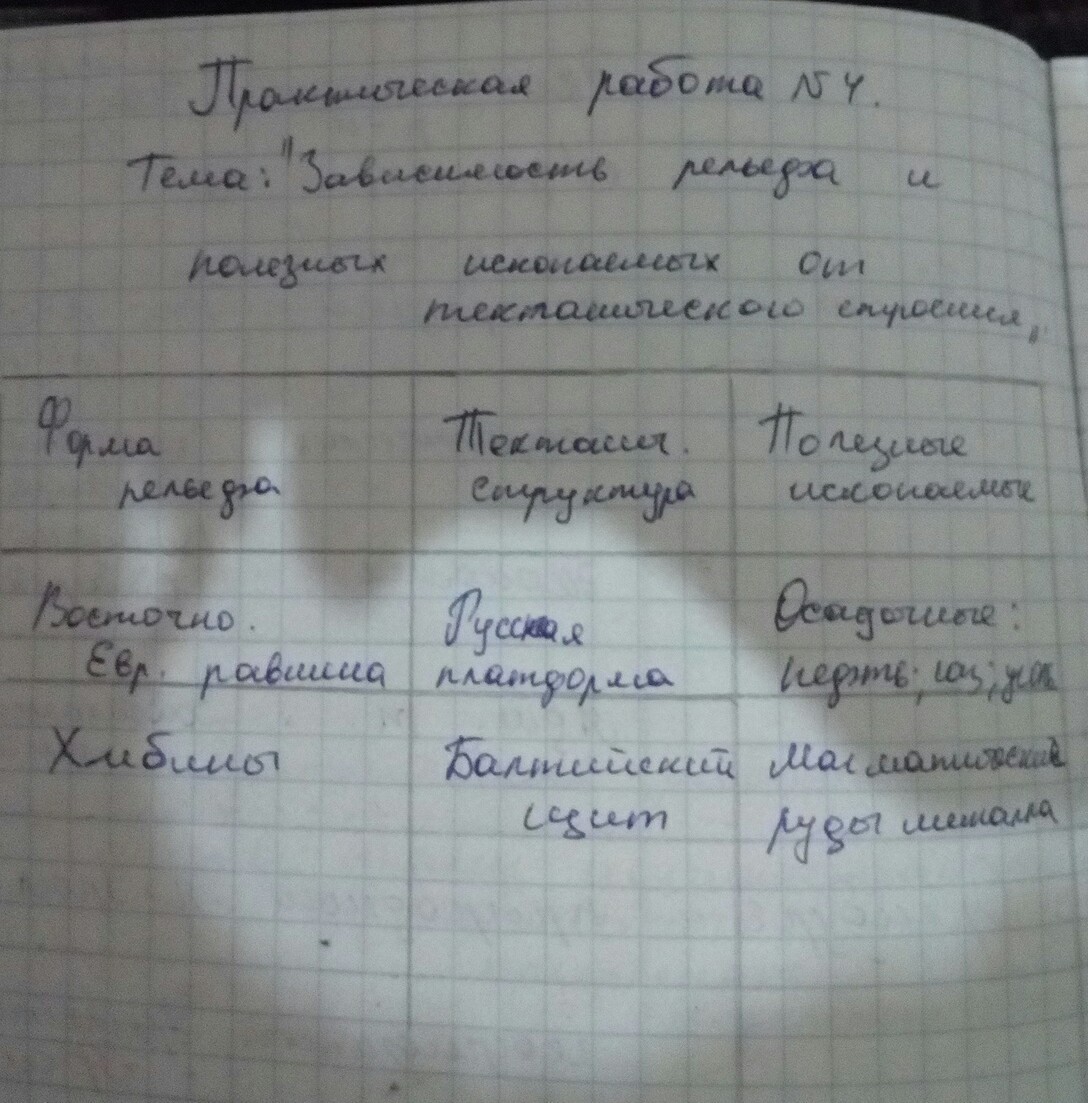 Практическая работа №4.
Тема: "Зависимость рельефа и
полезных ископаемых от
тектанического строения„
Форма
рельефа
Тектанич.
структура
Полезные
ископаемые
Восточно.
Евр. равнина
Русская
платформа
Осадочные:
нефть; газ; уголь
Хибины
Балтийский
щит
Магматические
руды металла